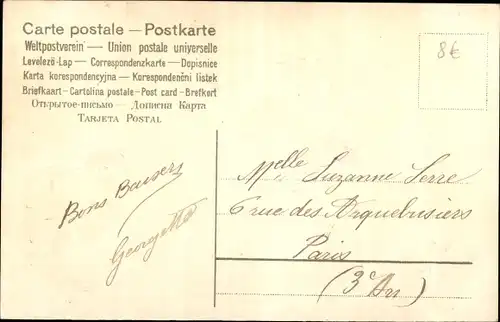 Carte postale — Postkarte
Weltpostverein — Union postale universelle
Levelező-Lap — Correspondenzkarte — Dopisnice
Karta korespondencyjna — Korespondenční lístek
Briefkaart - Cartolina postale - Post card - Brefkort
Открытое-письмо — Дописна Карта
Tarjeta Postal
8€
Bons Baisers
Georgette
Melle Suzanne Serre
6 rue des Arquebusiers
Paris
(3e Arr)